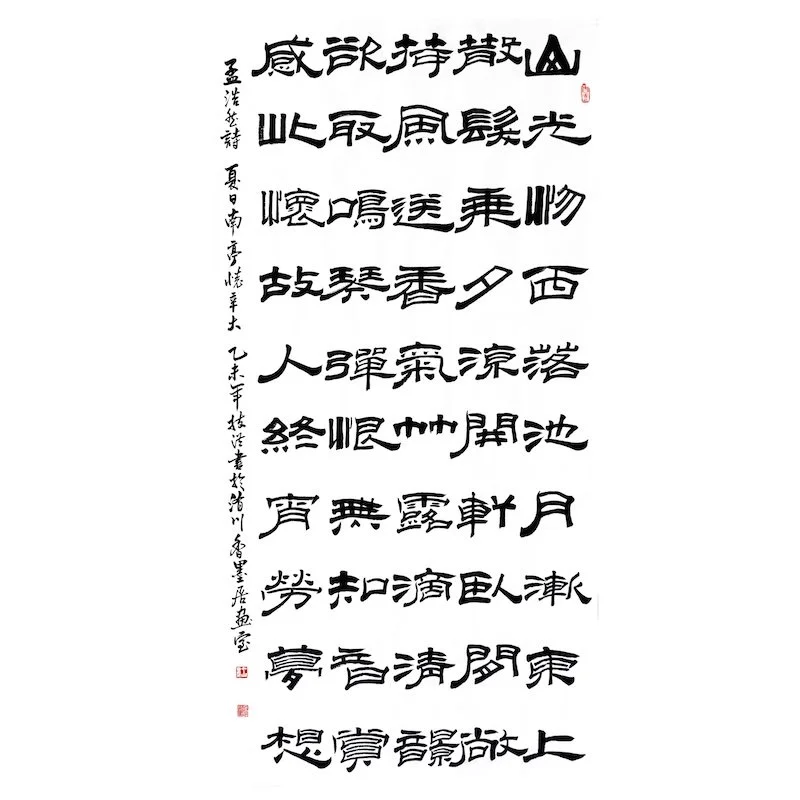 山光忽西落池月漸東上
散髮乘夕涼開軒臥閑敞
荷風送香氣竹露滴清響
欲取鳴琴彈恨無知音賞
感此懷故人終宵勞夢想
孟浩然詩 夏日南亭懷辛大 乙未年書於川香墨居畫室